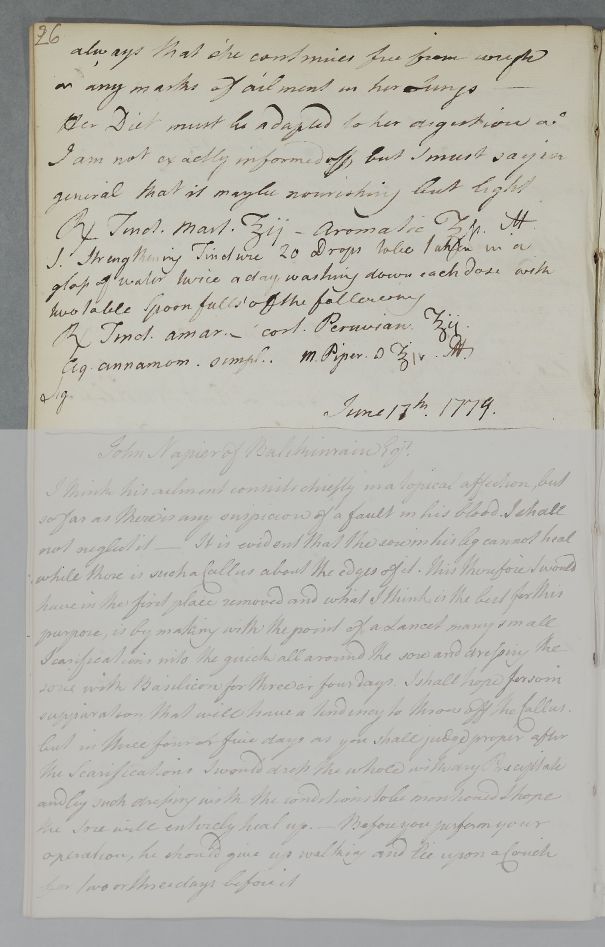 26
always that she continues free from cough
or any marks of ailment in her Lungs —
Her Diet must be adapted to her digestion as
I am not exactly informed of, but I must say in
general that it may be nourishing but light
℞ Tinct. Mart. ʒij – Aromatic ʒſs. M.
S. Strengthening Tincture 20 Drops to be taken in a
glass of water twice a day, washing down each dose with
two table Spoonfulls of the following
℞ Tinct. amar. – cort. Peruvian. ʒij.
Aq. cinnamom. simpl. M. Piper. a ʒiv. M.
Sig.
June 17th. 1779.
John Napier of Balchinrain Esqr.
I think his ailment consists chiefly in a topical affection, but
so far as there is any suspicion of a fault in his blood I shall
not neglect it — It is evident that the sore in his leg cannot heal
while there is such a Callus about the edges of it. This therefore I would
have in the first place removed and what I think is the best for this
purpose, is by making with the point of a Lancet many small
Scarifications into the quick all around the sore and dressing the
sore with Basilicon for three or four days. I shall hope for som
suppuration that will have a tendency to throw off the Callus.
but in three four or five days as you shall judge proper after
the Scarifications I would dress the whole with any Precipitate
and by such dressing with the conditions to be mentioned I hope
the sore will entirely heal up. — Before you perform your
operation, he should give up walking and lie upon a Couch
for two or three days before it